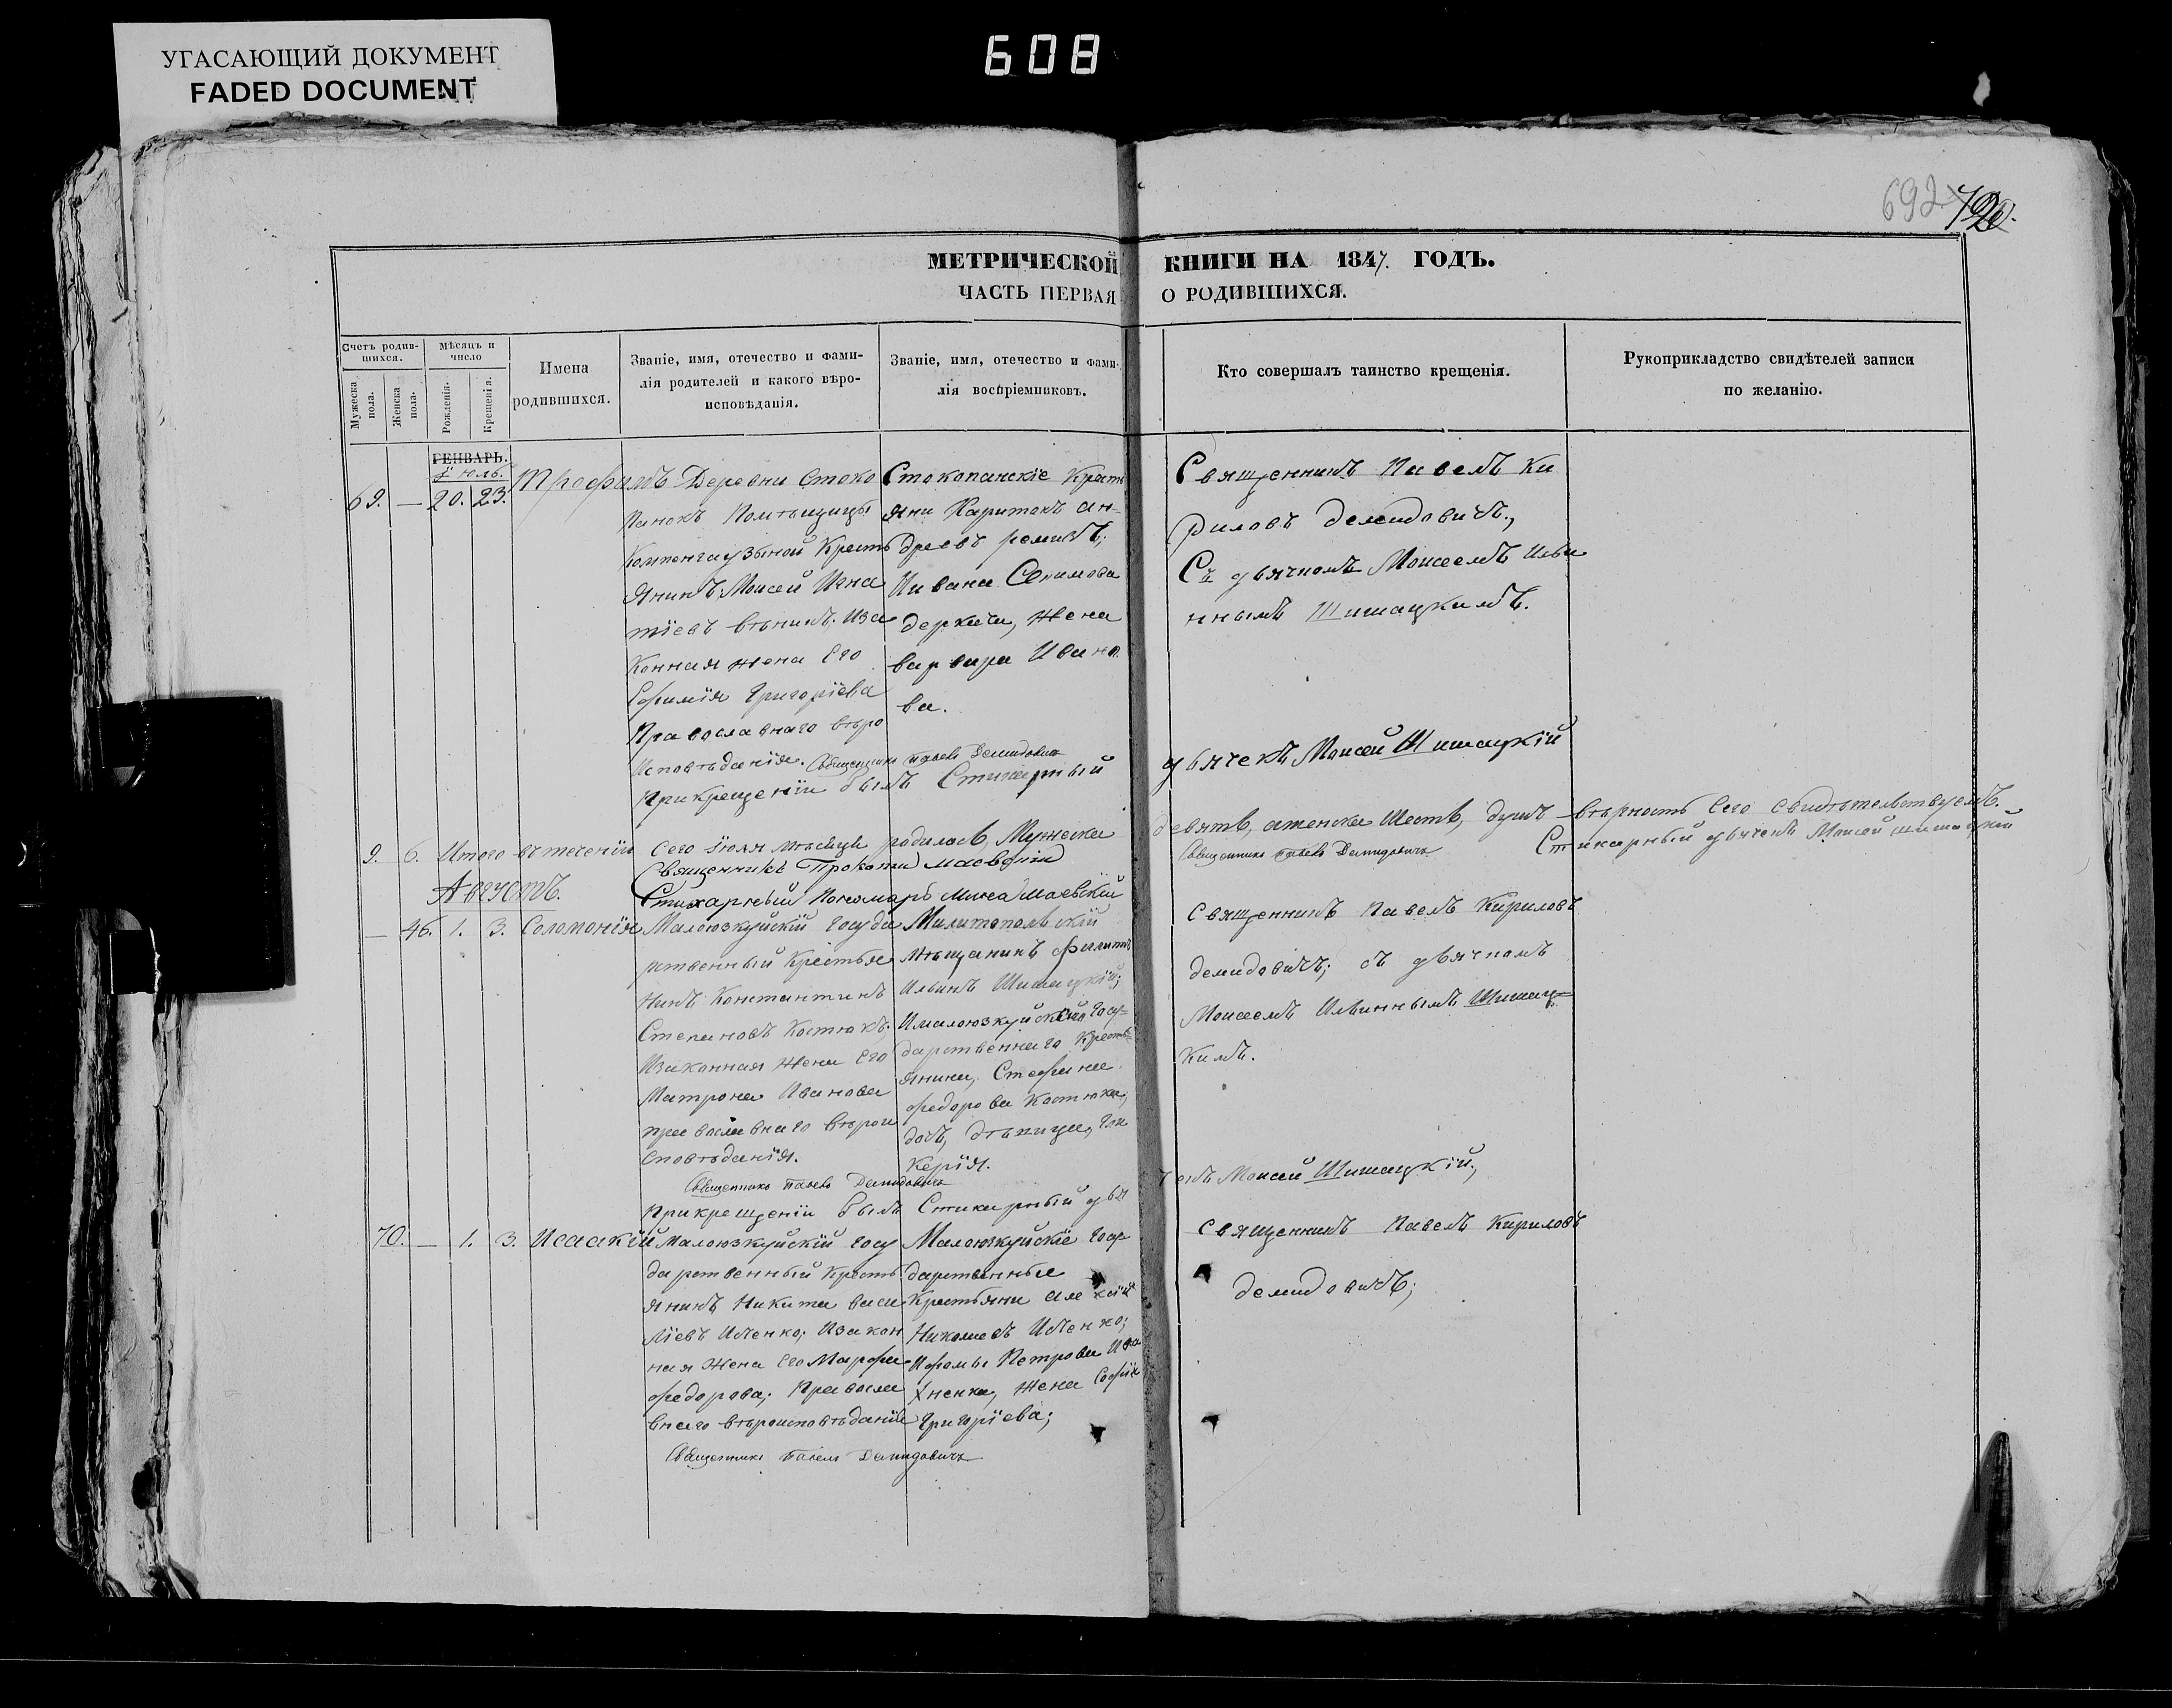 УГАСАЮЩИЙ ДОКУМЕНТ
FADED DOCUMENT
608
692
МЕТРИЧЕСКОЙ КНИГИ НА 1847. ГОДЪ.
ЧАСТЬ ПЕРВАЯ О РОДИВШИХСЯ.
Счетъ родив-
шихся.
Мужеска
пола.
Женска
пола.
Мѣсяцъ и
число
Рожденія.
Крещенія.
Имена
родившихся.
Званіе, имя, отечество и фами-
лія родителей и какого вѣро-
исповѣданія.
Званіе, имя, отечество и фами-
лія воспріемниковъ.
Кто совершалъ таинство крещенія.
Рукоприкладство свидѣтелей записи
по желанію.
ГЕНВАРЬ.
Іюль.
69. — 20. 23. Трофимъ
Деревни Стоко
панокъ Помѣщицы
Крестъ
янинъ; Моисей Игна
тіевъ вѣникъ; Иза
конная жена Его
Ефимія Григоріева
Православнаго вѣро
исповѣданія. Священникъ Павелъ Демидовичъ
Стокопанскіе Кресть
яни Харитонъ Ан-
дреевъ
Ивана Секимова
деркачи, жена
варвара Ивано
ва.
Священникъ Павелъ Ки
риловъ демидовичъ,
Съ дьячкомъ Моисеемъ Ильи
ннымъ Шишацкимъ.
Прикрещеніи былъ Стихарный дьячекъ Моисей Шишацкій
9. 6. Итого втеченіи Сего Іюля мѣсяца родилось, Мужеска девять, аженска Шесть, душъ вѣрность Сего свидѣтельствуемъ.
Священникъ Прокопій Маевскій Священникъ Павелъ Демидовичъ Стихарный дьячекъ Моисей Шишацкій
Стихарный Пономарь Миха Маевскій
Августъ.
— 46. 1. 3. Соломонія
Малоюзкуйскій Госуда
рственный Крестья
нинъ Константинъ
Степановъ Костюкъ;
Изаконная жена Его
Матрона Иванова
православнаго вѣрои
сповѣданія.
Священникъ Павелъ Демидовичъ
Милитопольскій
мѣщанинъ Филиппъ
Ильинъ Шишацкій;
Ималоюзкуйскаго Госу-
дарственнаго Кресть-
янина, Стефана
Федорова Костюка,
дочь, дѣвица, Гли
керія.
Священникъ Павелъ Кириловъ
демидовичъ; съ дьячкомъ
Моисеемъ Ильиннымъ Шишац-
кимъ.
Прикрещеніи былъ Стихарный дья чекъ Моисей Шишацкій;
70. — 1. 3. Исаакій
Малоюзкуйскій Госу
дарственный Кресть
янинъ Никита Васи
ліевъ Иченко; Изакон
ная жена Его Марфа
Федорова; Правосла
внаго вѣроисповѣданія
Священникъ Павелъ Демидовичъ
Малоюзкуйскіе Госу
дарственные
Крестьяни Алексѣй
Николаевъ Иченко;
Ифомы Петрова
хненка, жена Софія
Григоріева;
Священникъ Павелъ Кириловъ
демидовичъ;